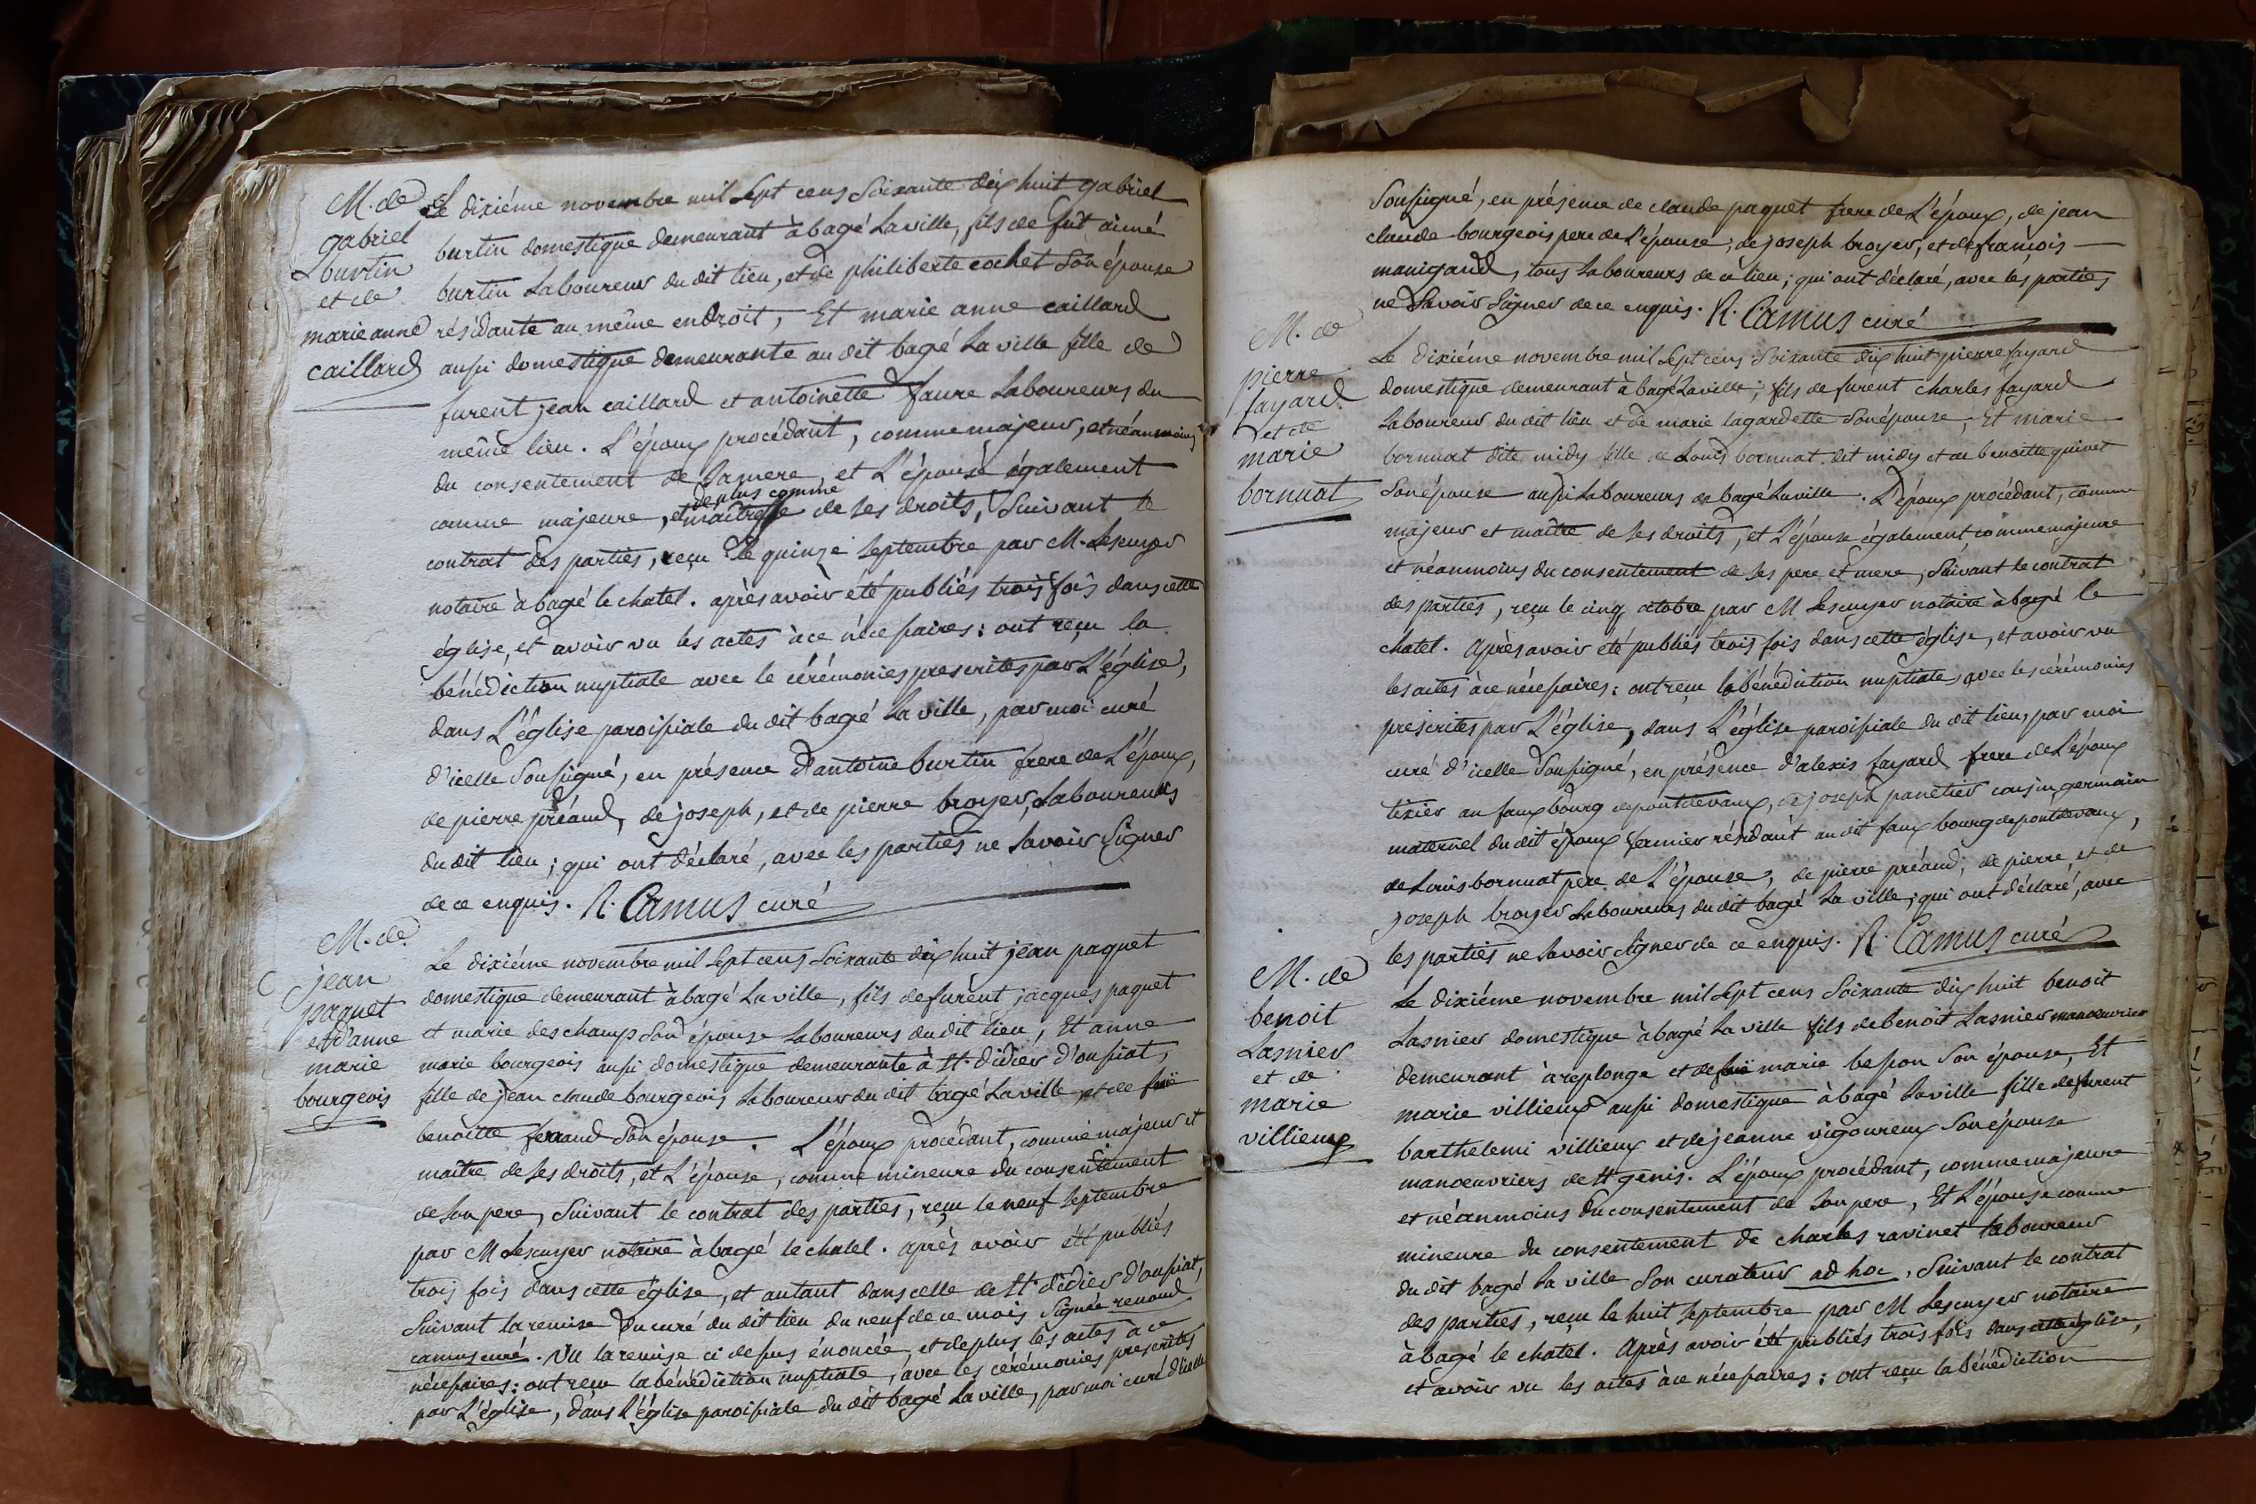 M. de
gabriel
burtin
et de
marie anne
caillard
Le dixiéme novembre mil sept cens soixante dix huit gabriel
burtin domestique demeurant à bagé la ville, fils de fût aimé
burtin laboureur du dit lieu, et de philiberte cochet son épouse
résidante au même endroit, Et marie anne caillard
aussi domestique demeurante au dit bagé la ville fille de
furent jean caillard et antoinette faure laboureurs du
même lieu. L'époux procédant, comme majeur, et néanmoins
du consentement de sa mere, et L'épouse également
comme majeure, et de plus comme maîtresse de ses droits, suivant le
contrat des parties, reçu le quinze septembre par M. Lescuyer
notaire à bagé le chatel. après avoir été publiés trois fois dans cette
église, et avoir vu les actes à ce nécessaires: ont reçu la
bénédiction nuptiale avec le cérémonies prescrites par L'église,
dans L'église paroissiale du dit bagé la ville, par moi curé
d'icelle soussigné, en présence d'antoine burtin frere de L'époux,
de pierre préaud, de joseph, et de pierre broyer, laboureurs
du dit lieu; qui ont déclaré, avec les parties ne savoir signer
de ce enquis. R. Camus curé
M. de
jean
paquet
et d'anne
marie
bourgeois
Le dixiéme novembre mil sept cens soixante dix huit jean paquet
domestique demeurant à bagé la ville, fils de furent jacques paquet
et marie deschamps son épouse laboureurs du dit lieu, Et anne
marie bourgeois aussi domestique demeurante à St didier d'oussiat,
fille de jean claude bourgeois laboureur du dit bagé la ville et de fuë
benoitte ferraud son épouse. L'époux procédant, comme majeur et
maître de ses droits, et L'épouse, comme mineure du consentement
de son pere, suivant le contrat des parties, reçu le neuf septembre
par M Lescuyer notaire à bagé le chatel. après avoir été publiés
trois fois dans cette église, et autant dans celle de St didier d'oussiat,
suivant la remise du curé du dit lieu du neuf de ce mois signée renoud
camus curé. Vu la remise ci dessus énoncée, et de plus les actes à ce
nécessaires: ont reçu la bénédiction nuptiale, avec les cérémonies prescrites
par L'église, dans L'église paroissiale du dit bagé la ville, par moi curé d'icelle
soussigné, en présence de claude paquet frere de L'époux, de jean
claude bourgeois pere de L'épouse, de joseph broyer, et de françois
manigand, tous laboureurs de ce lieu; qui ont déclaré, avec les parties
ne savoir signer de ce enquis. R. Camus curé
M. de
pierre
fayard
et de
marie
bornuat
Le dixiéme novembre mil sept cens soixante dix huit pierre fayard
domestique demeurant à bagé la ville, fils de furent charles fayard
laboureur du dit lieu et de marie lagardette son épouse, Et marie
bornuat dite midy fille de Louis bornuat dit midy et de benoitte quinet
son épouse aussi laboureurs de bagé la ville. L'époux procédant, comme
majeur et maître de ses droits, et L'épouse également comme majeure
et néanmoins du consentement de ses pere et mere, suivant le contrat
des parties, reçu le cinq octobre par M Lescuyer notaire à bagé le
chatel. Après avoir été publiés trois fois dans cette église, et avoir vu
les actes à ce nécessaires: ont reçu la bénédiction nuptiale, avec les cérémonies
prescrites par L'église, dans L'église paroissiale du dit lieu, par moi
curé d'icelle soussigné, en présence d'alexis fayard frere de L'époux
tixier au faux bourg de pontdevaux, de joseph panetier cousin germain
maternel du dit époux fermier résidant au dit faux bourg de pontdevaux,
de Louis bornuat pere de L'épouse, de pierre préaud, de pierre et de
joseph broyer laboureurs du dit bagé la ville, qui ont déclaré, avec
les parties ne savoir signer de ce enquis. R. Camus curé
M. de
benoit
Lasnier
et de
marie
villieux
Le dixiéme novembre mil sept cens soixante dix huit benoit
Lasnier domestique à bagé la ville fils de benoit Lasnier manoeuvrier
demeurant à replonge et de fuë marie besson son épouse, Et
marie villieux aussi domestique à bagé la ville fille de furent
barthelemi villieux et de jeanne vigoureux son épouse
manoeuvriers de St genis. L'époux procédant, comme majeure
et néanmoins du consentement de son pere, Et L'épouse comme
mineure du consentement de charles ravinet laboureur
du dit bagé la ville son curateur ad hoc, suivant le contrat
des parties, reçu le huit septembre par M Lescuyer notaire
à bagé le chatel. Après avoir été publiés trois fois dans cette église,
et avoir vu les actes à ce nécessaires: ont reçu la bénédiction